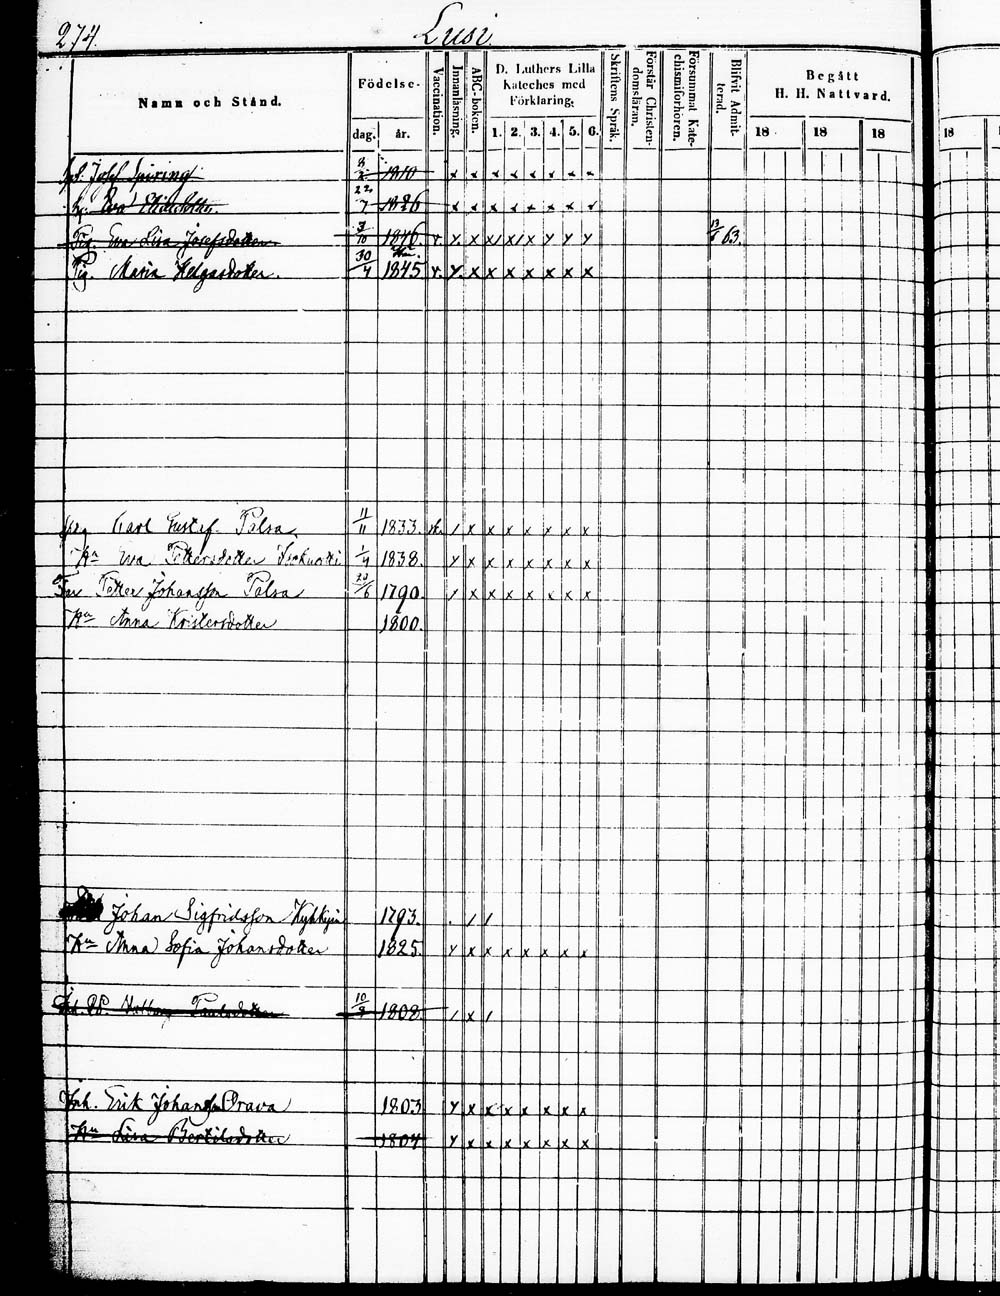 274.
Lusi.
Namn och Stånd.
Födelse-
dag. år.
Vaccination.
Innanläsning.
ABC-boken.
D. Luthers Lilla
Kateches med
Förklaring:
1. 2. 3. 4. 5. 6.
Skriftens Språk.
Förstår Christen-
domsläran.
Försummat Kate-
chismiförhören.
Blifvit Admit-
terad.
Begått
H. H. Nattvard.
18 18 18 18
Josef Spiring 8/2 1810 x x x x x x x x
Eva 22/7 1826 x x x x x x x x
Pig. Eva Lisa Josefsdotter 3/10 1846. v. 13/6 63.
Pig. Maria Helgasdotter. 30/4 1845 v. y x x x x x x x
Carl Gustaf Palsa 11/11 1833. / x x x x x x x
Hu Eva Pettersdotter 1/4 1838. y x x x x x x x
Far Petter Johansson Palsa 20/6 1790. / x x x x x x x
Hu Anna Kristersdotter 1800.
Johan Sigfridsson 1793. . / /
Hu Anna Sofia Johansdotter 1825. y x x x x x x x
Paulsdotter 10/9 1808. / x /
Inh. Erik Johansson Orava 1803 y x x x x x x x
Hu Lisa Bertilsdotter 1804 y x x x x x x x